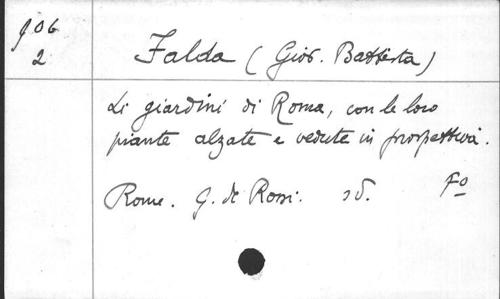 J06
2
Falda (Giov. Battista)
Li giardini di Roma, con le loro
piante alzate e vedute in prospettiva.
Rome. G. de Rossi. sd. Fº